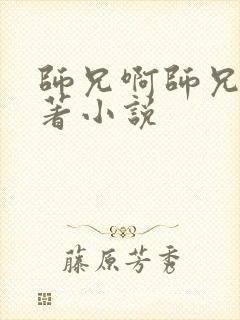 師兄啊師兄
著小說
藤原芳秀